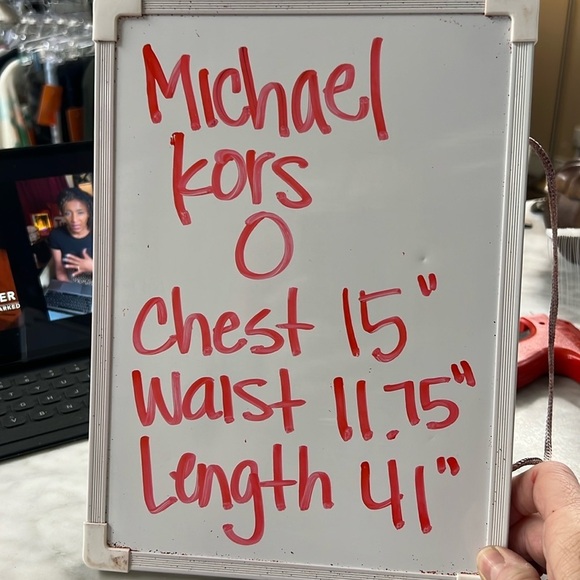 Michael
Kors
0
Chest 15"
Waist 11.75"
Length 41"
ER